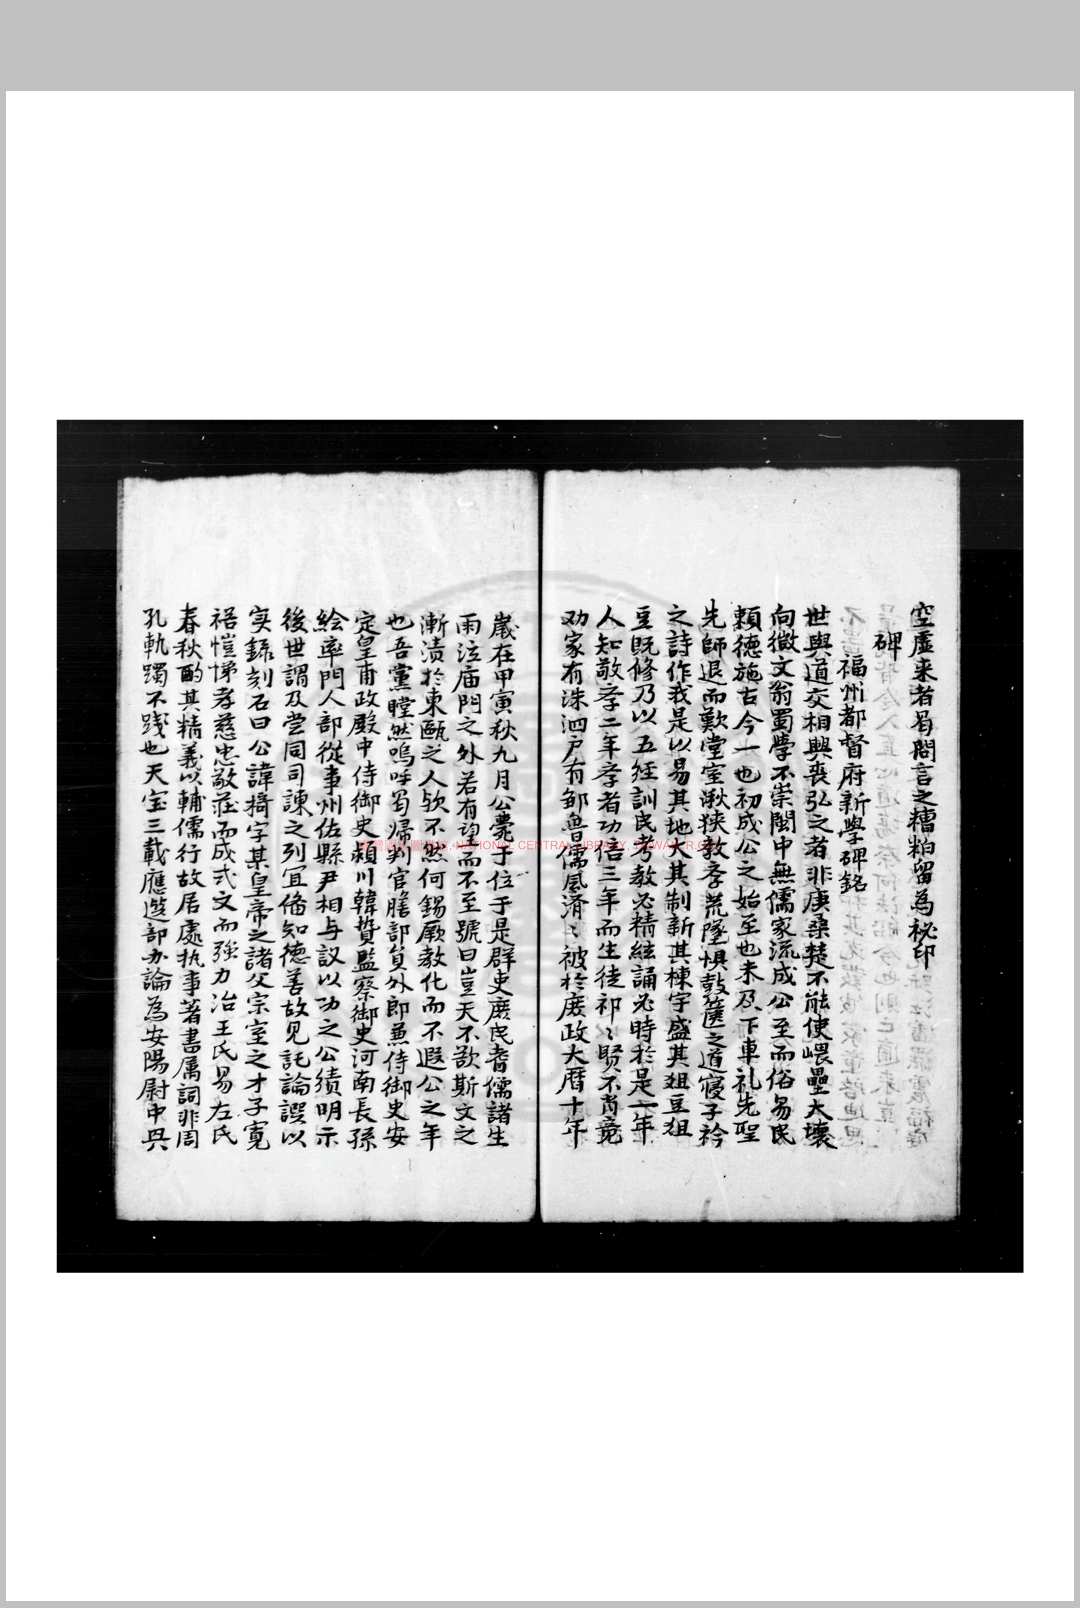 空虛来者曷問言之糟粕留為秘印
碑
福州都督府新學碑銘
世與道交相興喪弘之者非庚桑楚不能使嵔壘大壤
向微文翁蜀學不崇閩中無儒家流成公至而俗易民
賴德施古今一也初成公之始至也未及下車礼先聖
先師退而歎堂室湫狭敦孝荒墜惧鼓篋之道寝子衿
之詩作我是以易其地大其制新其棟宇盛其俎豆俎
豆既修乃以五经訓民考教必精絃誦必時於是一年
人知敬孝二年孝者功倍三年而生徒祁〻賢不肖竞
劝家有洙泗户有鄒魯儒風済〻被於庶政大曆十年
歳在甲寅秋九月公薨于位于是群吏庶民耆儒諸生
雨泣庙門之外若有望而不至號曰豈天不欲斯文之
漸漬於東甌之人欤不然何錫厥教化而不遐公之年
也吾黨瞠然嗚呼蜀㱕判官膳部负外郎兼侍御史安
定皇甫政殿中侍御史颍川韓贄監察御史河南長孫
絵率門人部從事州佐縣尹相与议以功之公绩明示
後世謂及尝同司諫之列冝俻知德善故见託論譔以
实錄刻石曰公諱掎字某皇帝之諸父宗室之才子寛
裕愷悌孝慈忠敬莊而成式文而強力治王氏易左氏
春秋酌其精義以輔儒行故居處执事著書属詞非周
孔軌躅不踐也天宝三載應选部办論為安陽尉中興